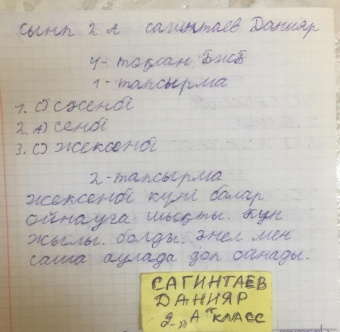 сынп 2 А сагинтаев Данияр
4-тоқсан БжБ
1-тапсырма
1. С) сженбі
2. А) сенбі
3. С) жексенбі
2-тапсырма
жексенбі күні балар
ойнауга шықты. Күн
жылы. болды. Әнел мен
саша аулада доп ойнады.
САГИНТАЕВ
ДАНИЯР
2 „А" КЛАСС